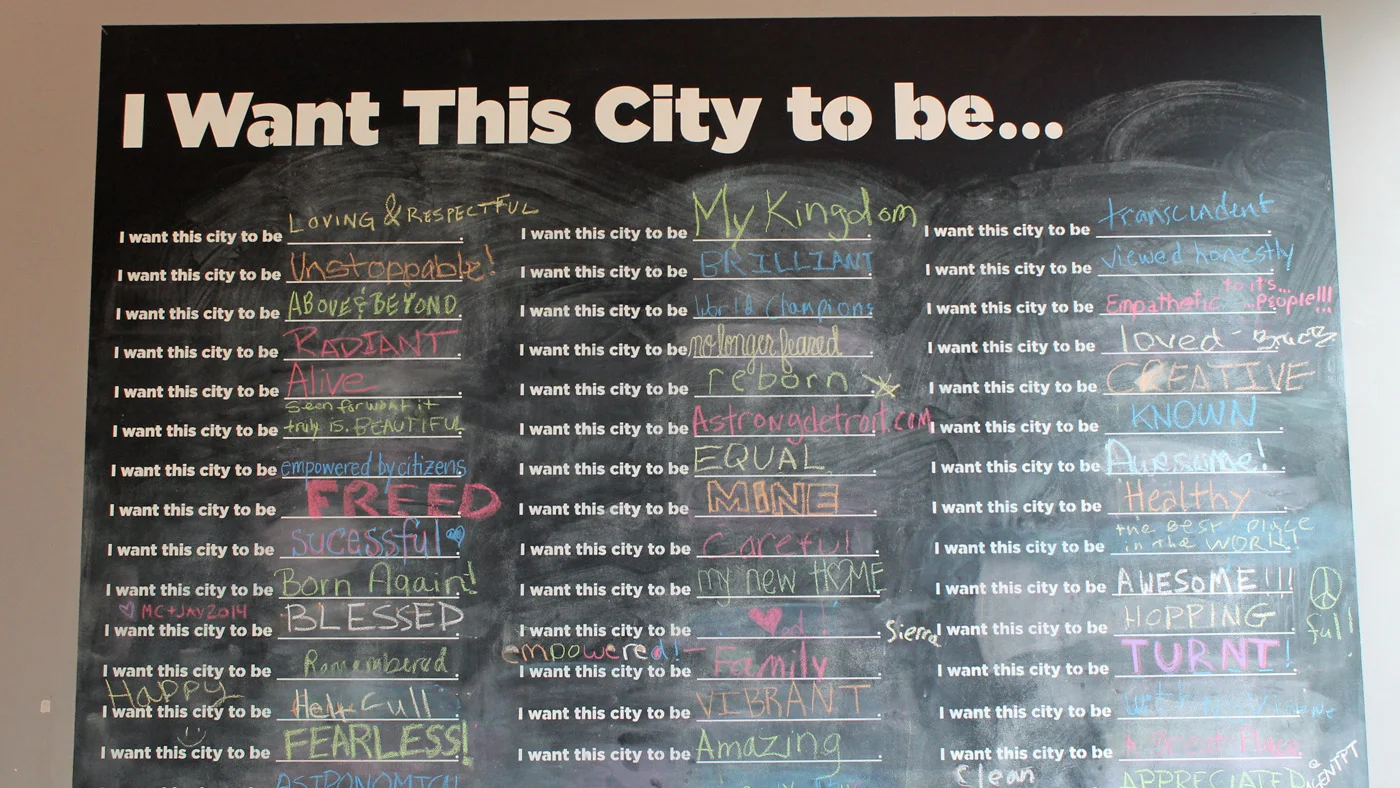 I Want This City to be...
I want this city to be LOVING & RESPECTFUL.
I want this city to be Unstoppable!.
I want this city to be ABOVE & BEYOND.
I want this city to be RADIANT.
I want this city to be Alive.
I want this city to be seen for what it
truly is. BEAUTIFUL.
I want this city to be empowered by citizens
I want this city to be FREED
I want this city to be sucessful
I want this city to be Born Again!
MC+JAY 2014
I want this city to be BLESSED.
I want this city to be Remembered.
HAPPY
I want this city to be Full.
I want this city to be FEARLESS!.
ASTRONOMICAL
I want this city to be My Kingdom
I want this city to be BRILLIANT.
I want this city to be World Champions.
I want this city to be no longer feared.
I want this city to be reborn
I want this city to be Astrongdetroit.com
I want this city to be EQUAL.
I want this city to be MINE.
I want this city to be Careful.
I want this city to be my new HOME
I want this city to be ♥ed!.
Sierra
empowered!
I want this city to be Family.
I want this city to be VIBRANT.
I want this city to be Amazing.
I want this city to be transcindent.
I want this city to be viewed honestly
to its...
I want this city to be Empathetic ...People!!!
I want this city to be loved -
I want this city to be CREATIVE.
I want this city to be KNOWN.
I want this city to be Awesome!.
I want this city to be Healthy.
I want this city to be the BEST place
in the WORLD.
I want this city to be AWESOME!!!
I want this city to be HOPPING.
full
I want this city to be TURNT!
I want this city to be
I want this city to be A Great Place.
Clean
APPRECIATED
@AGENTPT